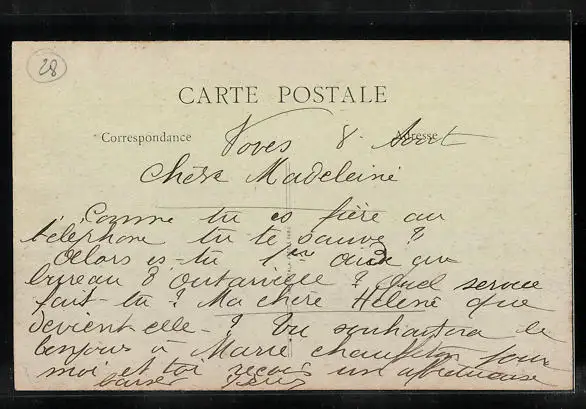 28
CARTE POSTALE
Correspondance
Adresse
Voves 8 Aout
Chère Madeleine
Comme tu es fière au
téléphone tu te sauve ?
Alors es-tu 1ère au
bureau d' ? Quel service
fait-tu ? Ma chère Hélène que
devient-elle - ? Tu souhaitera le
bonjour à Marie pour
moi et toi reçois un affectueuse
baiser